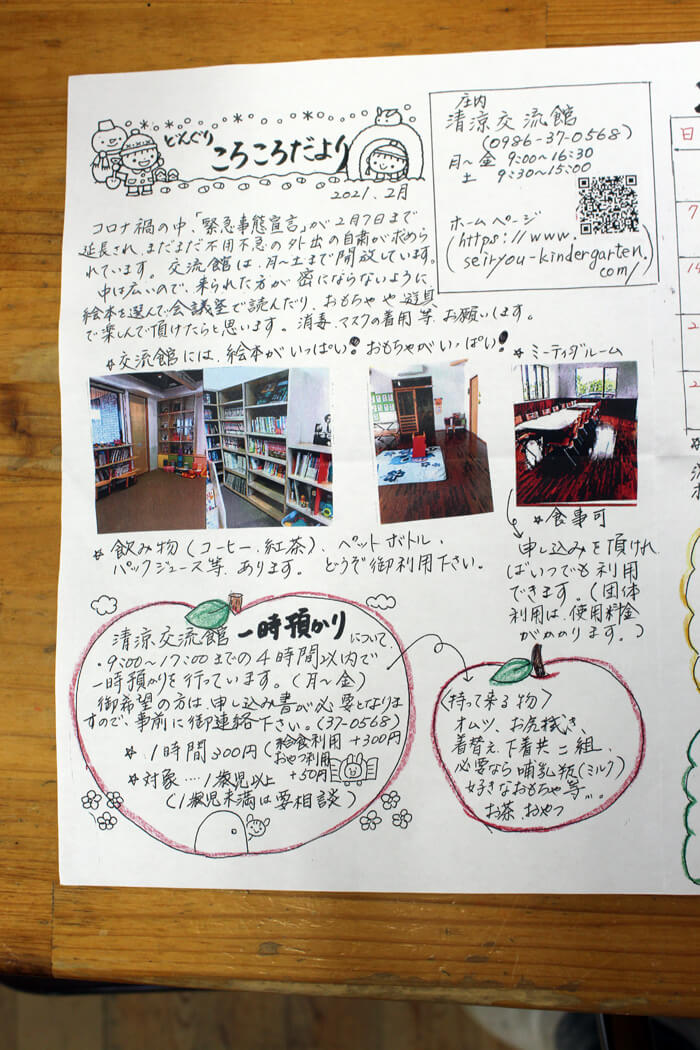 どんぐり
ころころだより
2021.2月
庄内
清涼交流館
(0986-37-0568)
月〜金 9:00〜16:30
土 9:30〜15:00
ホームページ
(https://www.
seiryou-kindergarten.
com/)
コロナ禍の中、「緊急事態宣言」が2月7日まで
延長され、まだまだ不用不急の外出の自粛が求めら
れています。交流館は、月〜土まで開放しています。
中は広いので、来られた方が密にならないように
絵本を選んで会議室で読んだり、おもちゃや遊具
で楽しんで頂けたらと思います。消毒、マスクの着用等、お願いします。
☆交流館には、絵本がいっぱい!おもちゃがいっぱい!
☆ミーティグルーム
☆食事可
申し込みを頂けれ
ばいつでも利用
できます。(団体
利用は、使用料金
がかかります。)
☆飲み物(コーヒー、紅茶)、ペットボトル、
パックジュース等、あります。どうぞ御利用下さい。
清涼交流館 一時預かりについて
・9:00〜17:00までの4時間以内で
一時預かりを行っています。(月〜金)
御希望の方は、申し込み書が必要となりま
すので、事前に御連絡下さい。(37-0568)
☆1時間300円(給食利用+300円
おやつ利用+50円
☆対象…1歳児以上
(1歳児未満は要相談)
〈持って来る物〉
オムツ、お尻拭き、
着替え、下着共二組、
必要なら哺乳瓶(ミルク)
好きなおもちゃ等…
お茶、おやつ
日
7
14